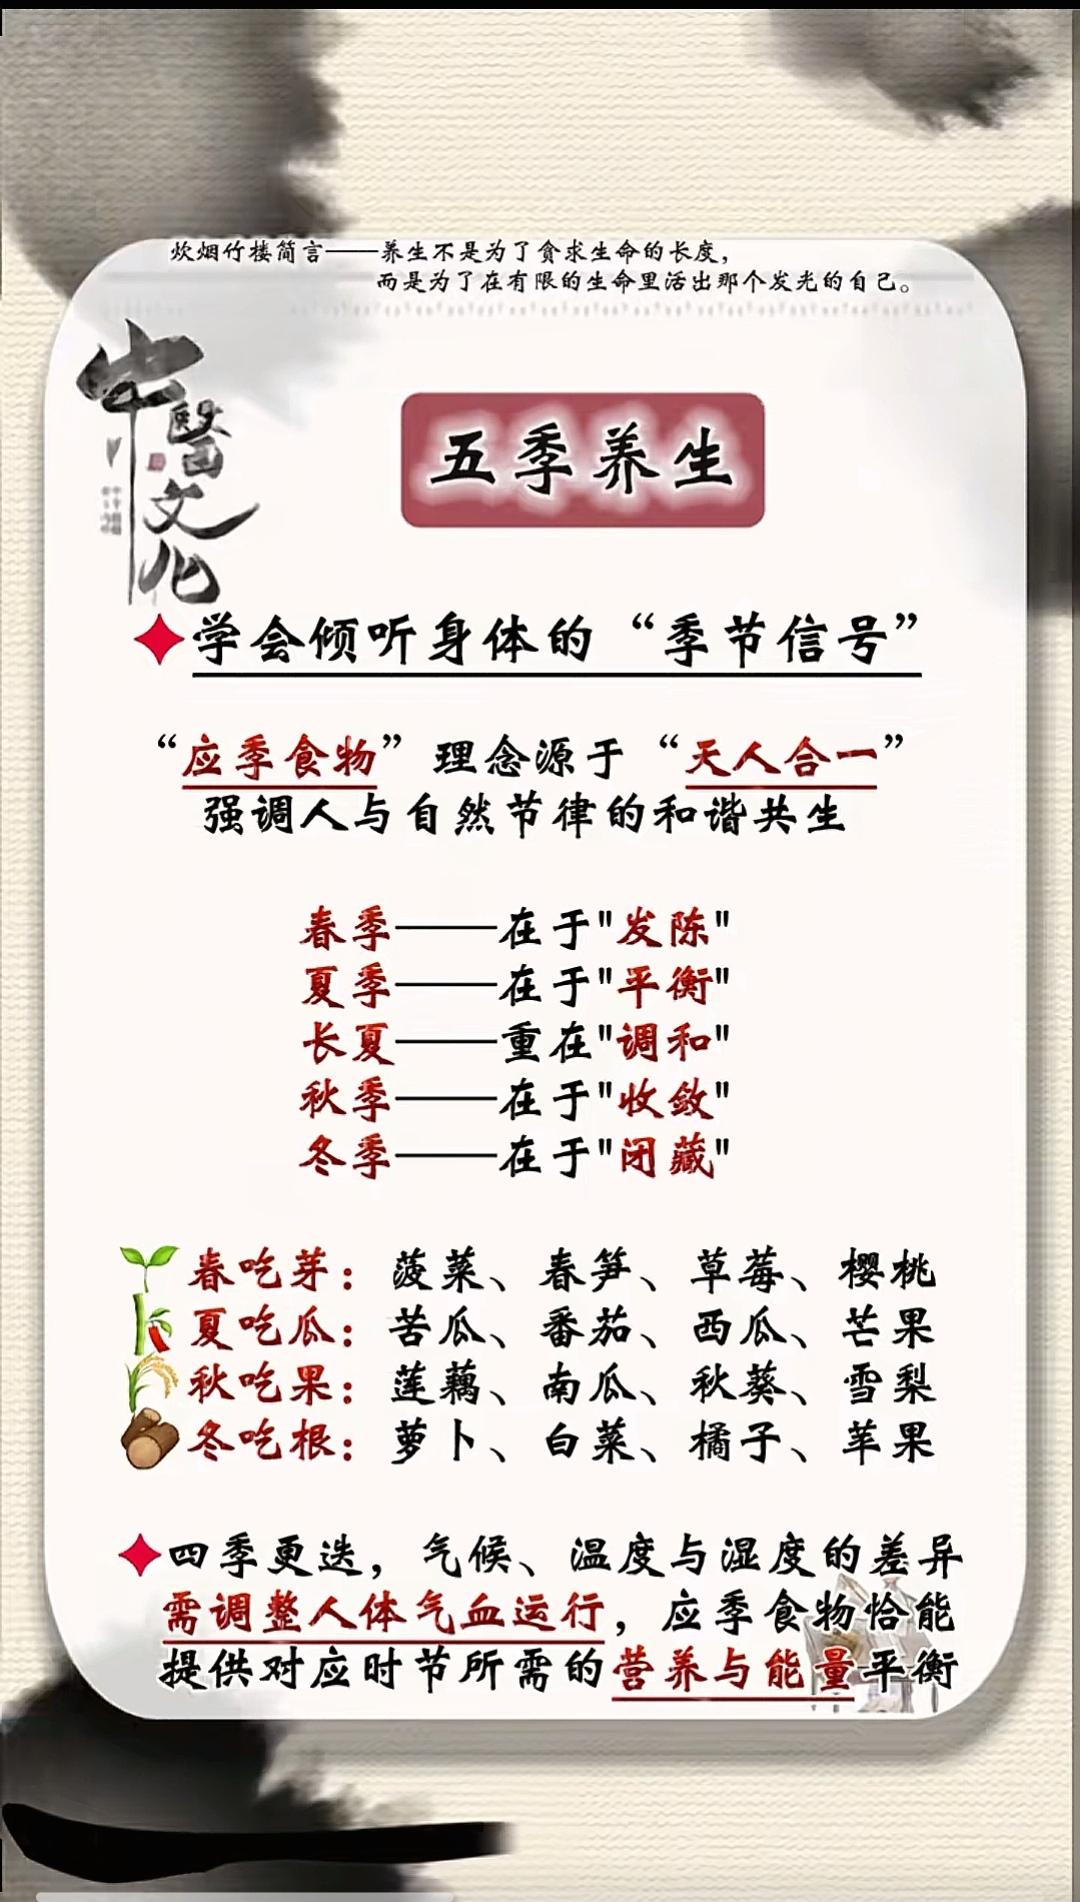 炊烟竹楼简言——养生不是为了贪求生命的长度，
而是为了在有限的生命里活出那个发光的自己。
中醫文化
五季养生
学会倾听身体的“季节信号”
“应季食物”理念源于“天人合一”
强调人与自然节律的和谐共生
春季——在于"发陈"
夏季——在于"平衡"
长夏——重在"调和"
秋季——在于"收敛"
冬季——在于"闭藏"
春吃芽：菠菜、春笋、草莓、樱桃
夏吃瓜：苦瓜、番茄、西瓜、芒果
秋吃果：莲藕、南瓜、秋葵、雪梨
冬吃根：萝卜、白菜、橘子、苹果
四季更迭，气候、温度与湿度的差异
需调整人体气血运行，应季食物恰能
提供对应时节所需的营养与能量平衡